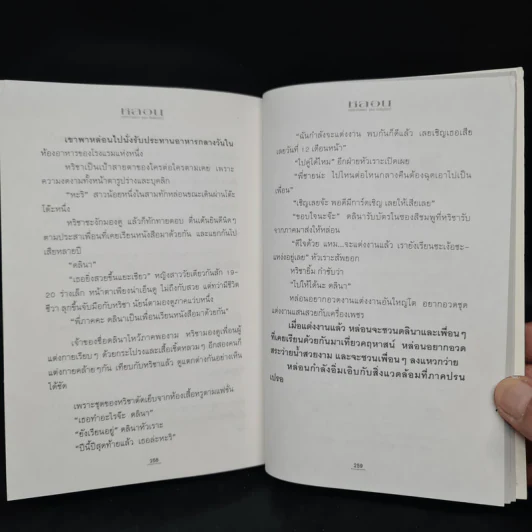 เขาพาหล่อนไปนั่งรับประทานอาหารกลางวันใน
ห้องอาหารของโรงแรมแห่งหนึ่ง
ทริชาเป็นเป้าสายตาของใครต่อใครตามเคย เพราะ
ความงดงามทั้งหน้าตารูปร่างและบุคลิก
"ทะริ" สาวน้อยหนึ่งในสามทักหล่อนขณะเดินผ่านโต๊ะ
โต๊ะหนึ่ง
ทริชาชะงักมองดู แล้วก็ทักทายตอบ ตื่นเต้นยินดีนิดๆ
ตามประสาเพื่อนที่เคยเรียนหนังสือมาด้วยกัน และแยกกันไป
เสียหลายปี
"คลินา"
"เธอยิ่งสวยขึ้นแยะเชียว" หญิงสาววัยเดียวกันสัก 19-
20 ร่างเล็ก หน้าตาเพียงน่าเอ็นดู ไม่ถึงกับสวย แต่ทว่ามีชีวิต
ชีวา ลุกขึ้นจับมือกับทริชา นัยน์ตามองดูภาคแวบหนึ่ง
"พี่ภาคคะ คลินาเป็นเพื่อนเรียนหนังสือมาด้วยกัน"
เจ้าของชื่อคลินาไหว้ภาคพองาม ทริชามองดูเพื่อนผู้
แต่งกายเรียบๆ ด้วยกระโปรงและเสื้อเชิ้ตหลวมๆ อีกสองคนก็
แต่งกายคล้ายๆ กัน เทียบกับทริชาแล้ว ดูแตกต่างกันอย่างเห็น
ได้ชัด
เพราะชุดของทริชาตัดเย็บจากห้องเสื้อหรูตามแฟชั่น
"เธอทำอะไรจ๊ะ คลินา"
"ยังเรียนอยู่" คลินาหัวเราะ
"ปีนี้ปีสุดท้ายแล้ว เธอล่ะทะริ"
258
"ฉันกำลังจะแต่งงาน พบกันก็ดีแล้ว เลยเชิญเธอเสีย
เลยวันที่ 12 เดือนหน้า"
"ไปคู่ได้ไหม" อีกฝ่ายหัวเราะเปิดเผย
"พี่ชายน่ะ ไปไหนต่อไหนกลางคืนต้องฉุดเอาไปเป็น
เพื่อน"
"เชิญเลยจ้ะ พอดีมีการ์ดเชิญ เลยให้เสียเลย"
"ขอบใจนะจ๊ะ" คลินารับบัตรในซองสีชมพูที่ทริชารับ
จากภาคมาส่งให้หล่อน
"ดีใจด้วย แหม...จะแต่งงานแล้ว เรายังเรียนซะเงื้อซะ-
แง่งอยู่เลย" หัวเราะสัพยอก
ทริชายิ้ม กำชับว่า
"ไปให้ได้นะ คลินา"
หล่อนอยากอวดงานแต่งงานอันใหญ่โต อยากอวดชุด
แต่งงานแสนสวยกับเครื่องเพชร
เมื่อแต่งงานแล้ว หล่อนจะชวนคลินาและเพื่อนๆ
ที่เคยเรียนด้วยกันมาเที่ยวคฤหาสน์ หล่อนอยากอวด
สระว่ายน้ำสวยงาม และจะชวนเพื่อนๆ ลงแหวกว่าย
หล่อนกำลังอิ่มเอิบกับสิ่งแวดล้อมที่ภาคปรน
เปรอ
259